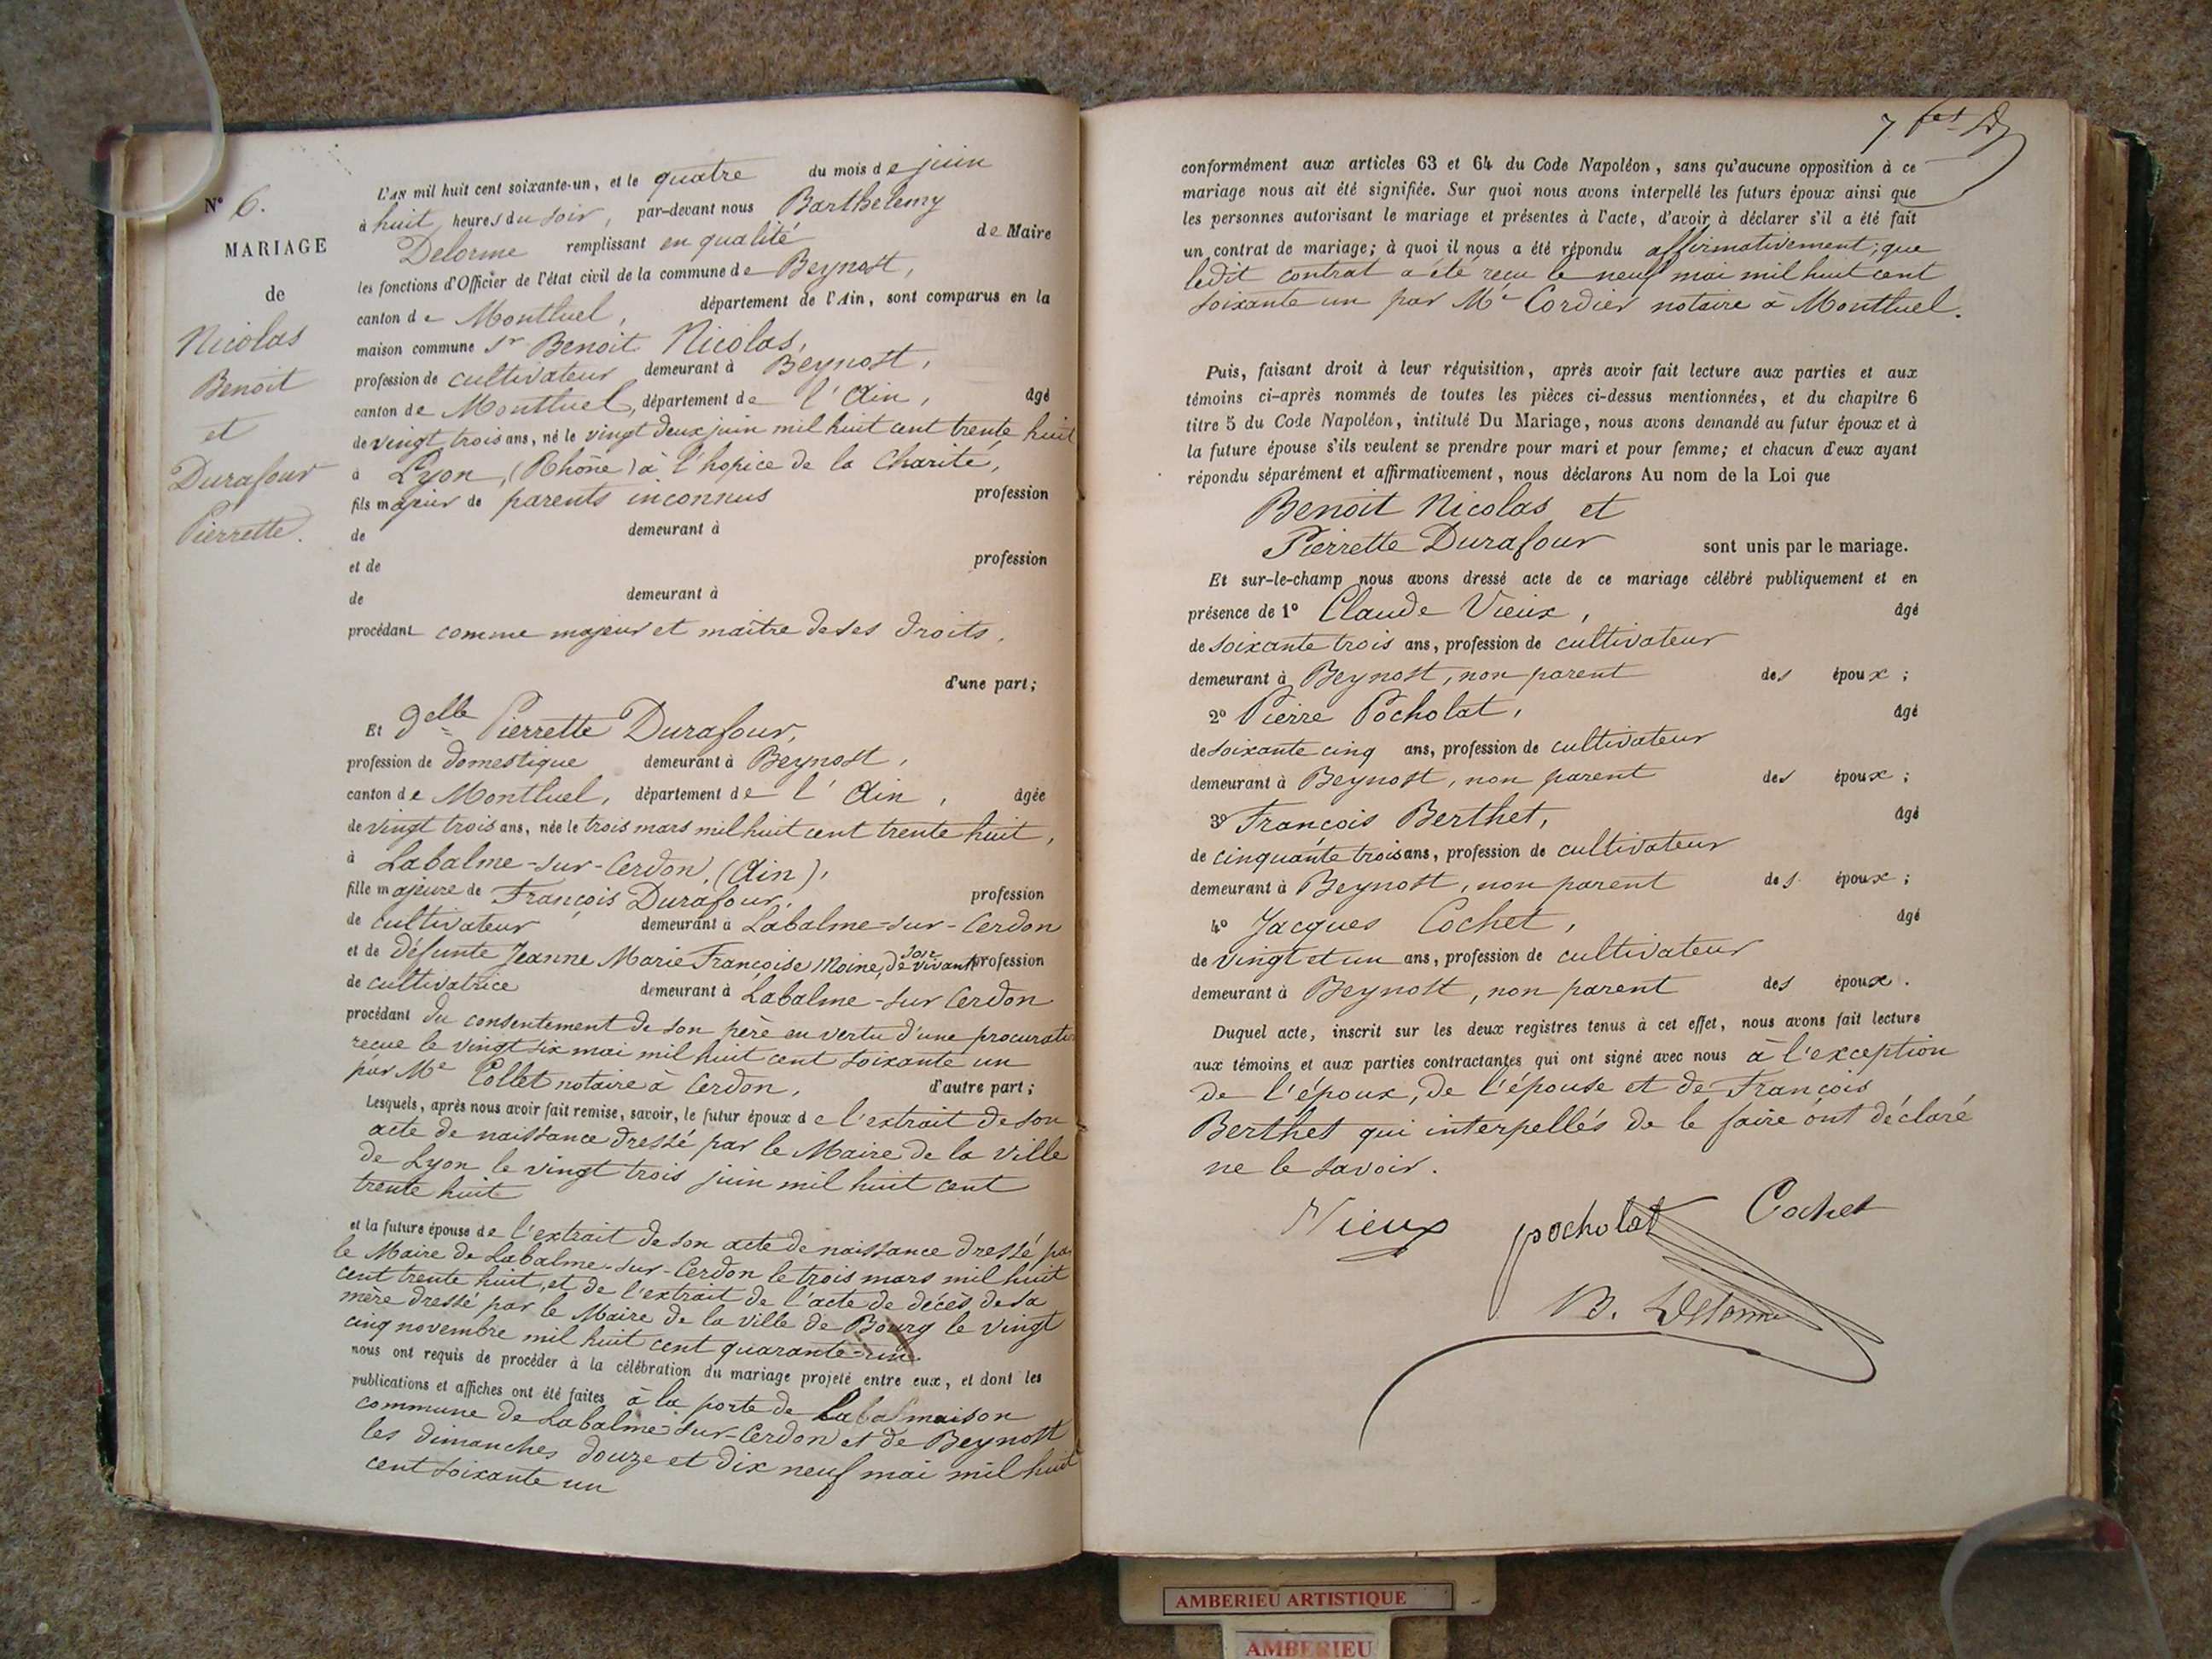 N° 6.
MARIAGE
de
Nicolas
Benoit
et
Durafour
Pierrette.
L'AN mil huit cent soixante-un, et le quatre du mois de juin
à huit heures du soir, par-devant nous Barthelemy
Delorme remplissant en qualité de Maire
les fonctions d'Officier de l'état civil de la commune de Beynost,
canton de Montluel, département de l'Ain, sont comparus en la
maison commune Sr Benoit Nicolas,
profession de cultivateur demeurant à Beynost,
canton de Montluel, département de l'Ain, âgé
de vingt trois ans, né le vingt deux juin mil huit cent trente huit
à Lyon, (Rhône) à l'hospice de la Charité,
fils majeur de parents inconnus profession
de demeurant à
et de profession
de demeurant à
procédant comme majeur et maître de ses droits.
d'une part;
Et Delle Pierrette Durafour,
profession de domestique demeurant à Beynost,
canton de Montluel, département de l'Ain, âgée
de vingt trois ans, née le trois mars mil huit cent trente huit,
à Labalme-sur-Cerdon, (Ain),
fille majeure de François Durafour, profession
de cultivateur demeurant à Labalme-sur-Cerdon
et de défunte Jeanne Marie Françoise Moine, de son vivant profession
de cultivatrice demeurant à Labalme-sur Cerdon
procédant du consentement de son père en vertu d'une procuration
reçue le vingt six mai mil huit cent soixante un
par Me Collet notaire à Cerdon, d'autre part;
Lesquels, après nous avoir fait remise, savoir, le futur époux de l'extrait de son
acte de naissance dressé par le Maire de la ville
de Lyon le vingt trois juin mil huit cent
trente huit
et la future épouse de l'extrait de son acte de naissance dressé par
le Maire de Labalme-sur-Cerdon le trois mars mil huit
cent trente huit, et de l'extrait de l'acte de décès de sa
mère dressé par le Maire de la ville de Bourg le vingt
cinq novembre mil huit cent quarante-un
nous ont requis de procéder à la célébration du mariage projeté entre eux, et dont les
publications et affiches ont été faites à la porte de la maison
commune de Labalme sur-Cerdon et de Beynost
les dimanches douze et dix neuf mai mil huit
cent soixante un
7
conformément aux articles 63 et 64 du Code Napoléon, sans qu'aucune opposition à ce
mariage nous ait été signifiée. Sur quoi nous avons interpellé les futurs époux ainsi que
les personnes autorisant le mariage et présentes à l'acte, d'avoir à déclarer s'il a été fait
un contrat de mariage; à quoi il nous a été répondu affirmativement; que
ledit contrat a été reçu le neuf mai mil huit cent
soixante un par Me Cordier notaire à Montluel.
Puis, faisant droit à leur réquisition, après avoir fait lecture aux parties et aux
témoins ci-après nommés de toutes les pièces ci-dessus mentionnées, et du chapitre 6
titre 5 du Code Napoléon, intitulé Du Mariage, nous avons demandé au futur époux et à
la future épouse s'ils veulent se prendre pour mari et pour femme; et chacun d'eux ayant
répondu séparément et affirmativement, nous déclarons Au nom de la Loi que
Benoit Nicolas et
Pierrette Durafour sont unis par le mariage.
Et sur-le-champ nous avons dressé acte de ce mariage célébré publiquement et en
présence de 1° Claude Vieux, âgé
de soixante trois ans, profession de cultivateur
demeurant à Beynost, non parent des époux;
2° Pierre Pocholat, âgé
de soixante cinq ans, profession de cultivateur
demeurant à Beynost, non parent des époux;
3° François Berthet, âgé
de cinquante trois ans, profession de cultivateur
demeurant à Beynost, non parent des époux;
4° Jacques Cochet, âgé
de vingt et un ans, profession de cultivateur
demeurant à Beynost, non parent des époux.
Duquel acte, inscrit sur les deux registres tenus à cet effet, nous avons fait lecture
aux témoins et aux parties contractantes qui ont signé avec nous à l'exception
de l'époux, de l'épouse et de François
Berthet qui interpellés de le faire ont déclaré
ne le savoir.
Vieux pocholat Cochet
B. Delorme
AMBERIEU ARTISTIQUE
AMBERIEU